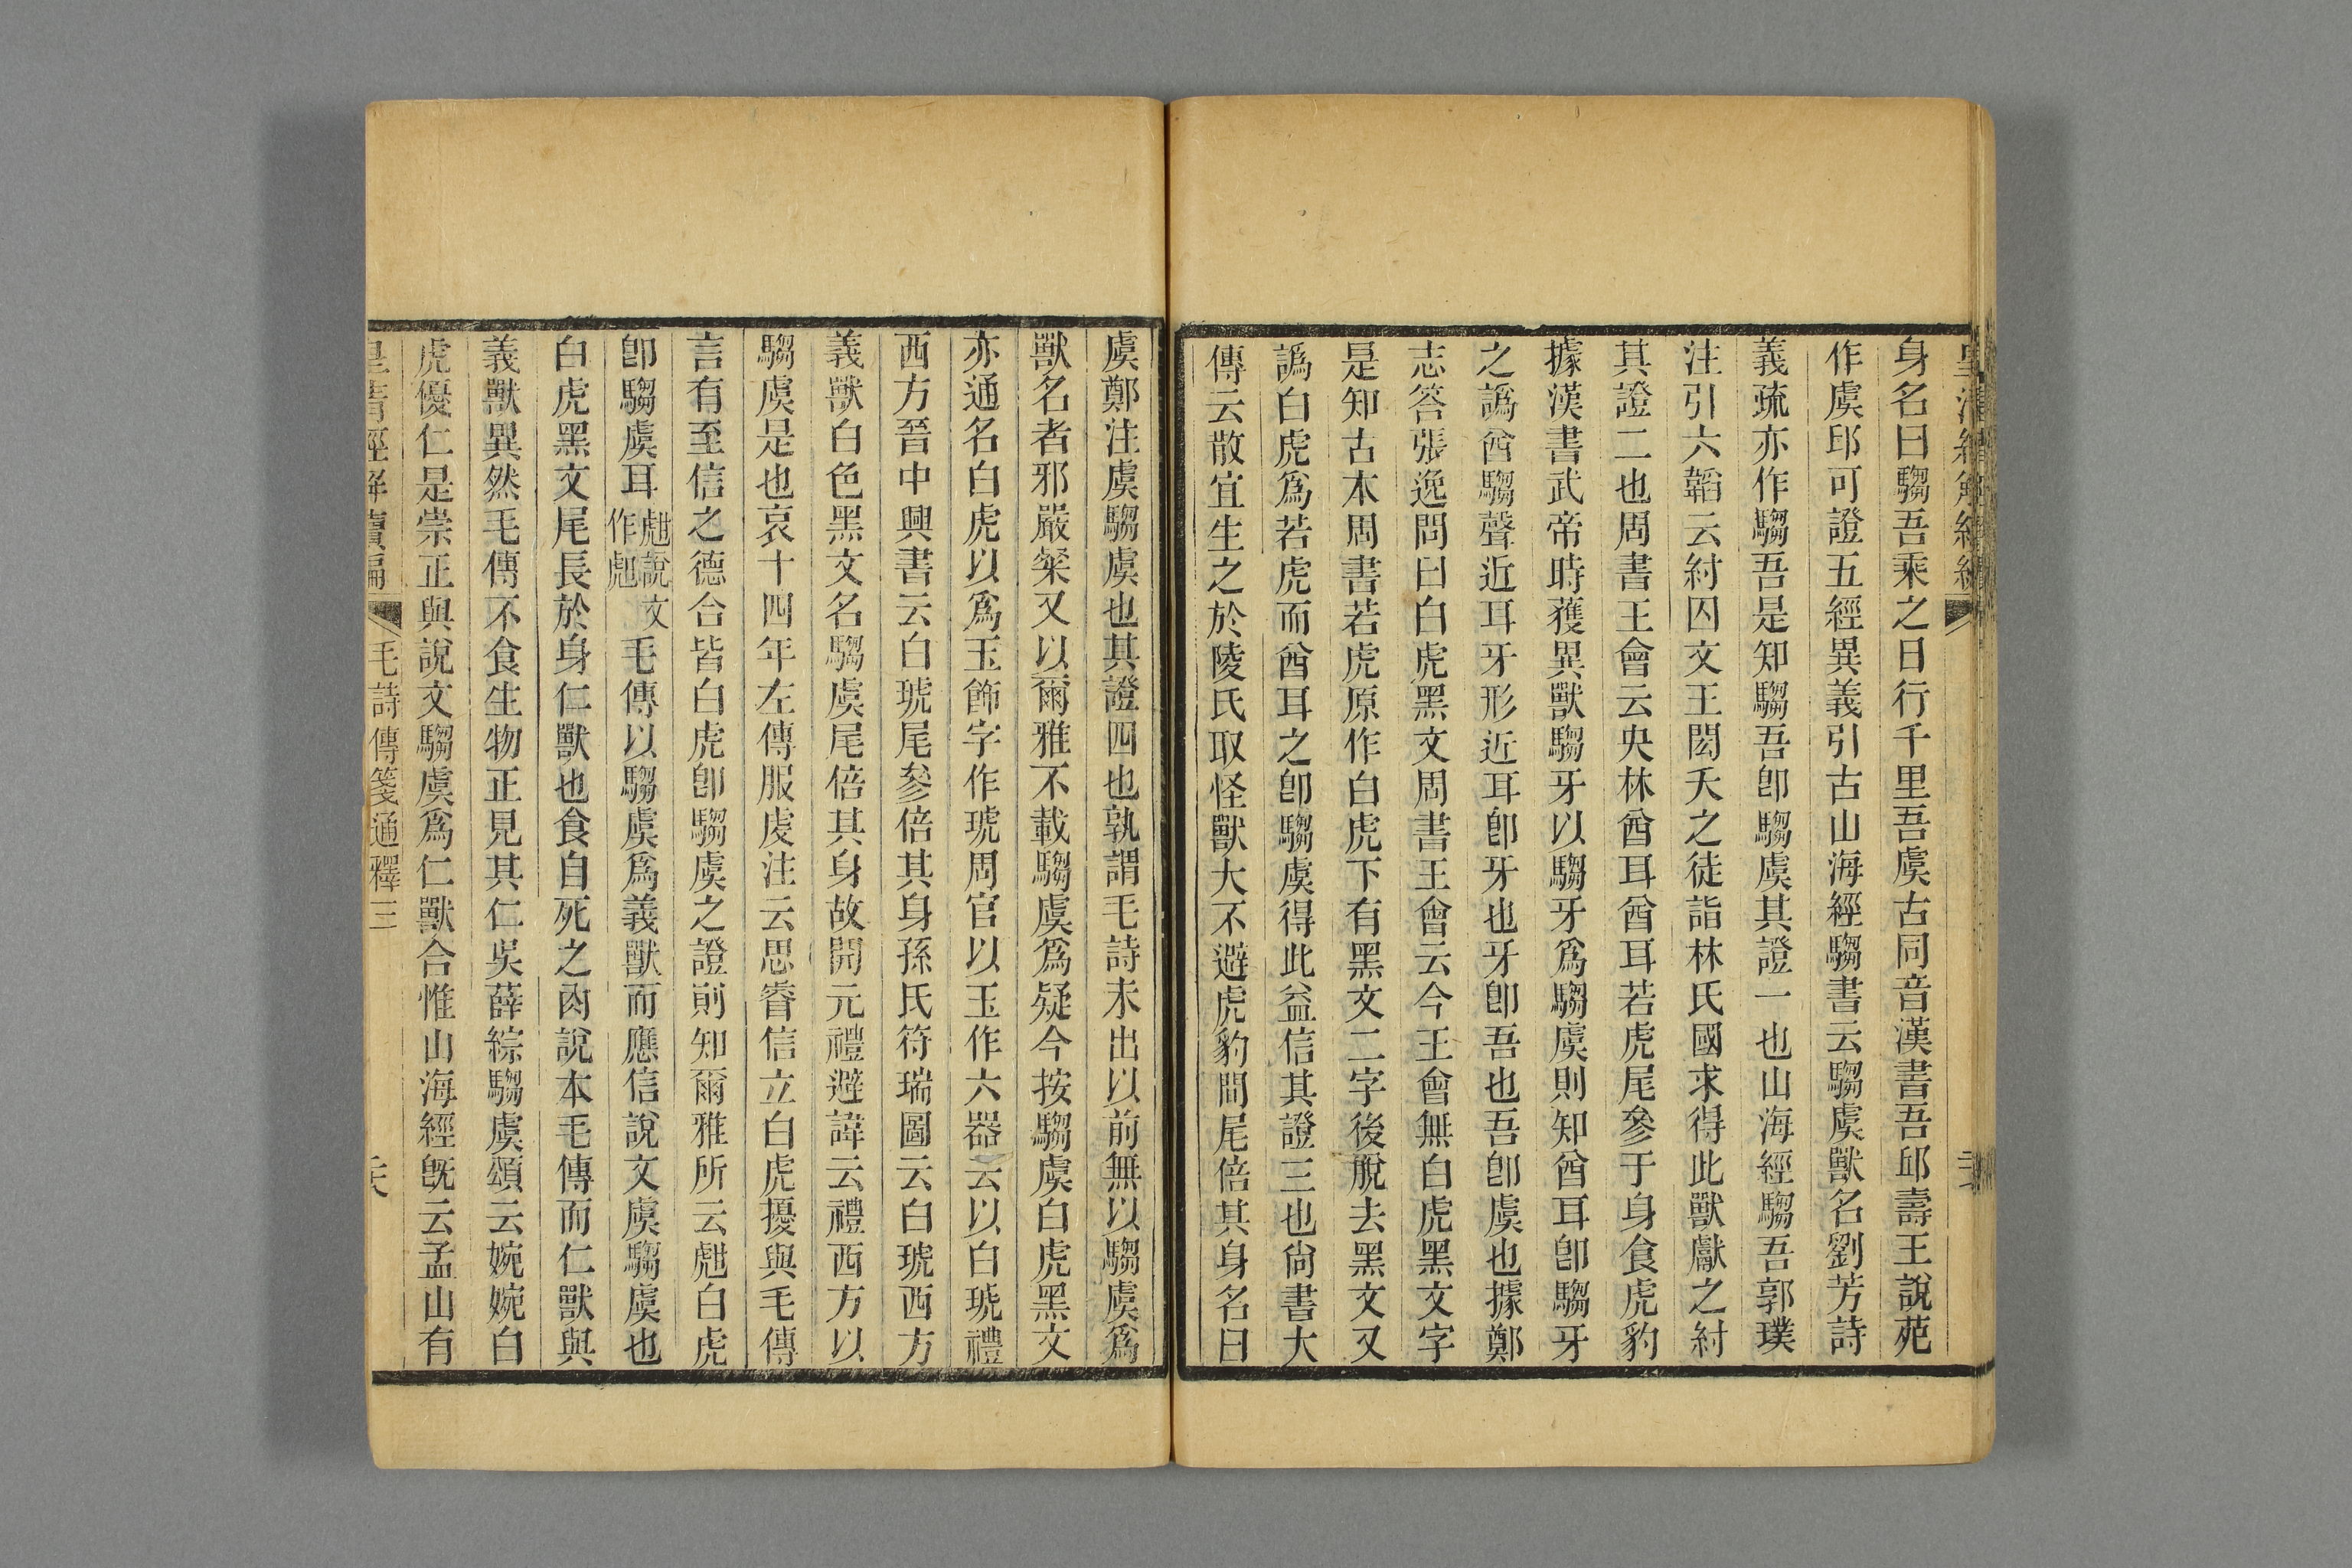 身名曰騶吾乘之日行千里吾虞古同音漢書吾邱壽王說苑
作虞邱可證五經異義引古山海經騶書云騶虞獸名劉芳詩
義疏亦作騶吾是知騶吾卽騶虞其證一也山海經騶吾郭璞
注引六韜云紂囚文王閎夭之徒詣林氏國求得此獸獻之紂
其證二也周書王會云央林酋耳酋耳若虎尾參于身食虎豹
據漢書武帝時獲異獸騶牙以騶牙爲騶虞則知酋耳卽騶牙
之譌酋騶聲近耳牙形近耳卽牙也牙卽吾也吾卽虞也據鄭
志答張逸問曰白虎黑文周書王會云今王會無白虎黑文字
是知古本周書若虎原作白虎下有黑文二字後脫去黑文又
譌白虎爲若虎而酋耳之卽騶虞得此益信其證三也尙書大
傳云散宜生之於陵氏取怪獸大不避虎豹間尾倍其身名曰
虞鄭注虞騶虞也其證四也孰謂毛詩未出以前無以騶虞爲
獸名者邪嚴粲又以爾雅不載騶虞爲疑今按騶虞白虎黑文
亦通名白虎以爲玉飾字作琥周官以玉作六器云以白琥禮
西方晉中興書云白琥尾參倍其身孫氏符瑞圖云白琥西方
義獸白色黑文名騶虞尾倍其身故開元禮避諱云禮西方以
騶虞是也哀十四年左傳服虔注云思睿信立白虎擾與毛傳
言有至信之德合皆白虎卽騶虞之證則知爾雅所云甝白虎
卽騶虞耳甝說文作䖑毛傳以騶虞爲義獸而應信說文虞騶虞也
白虎黑文尾長於身仁獸也食自死之肉說本毛傳而仁獸與
義獸異然毛傳不食生物正見其仁吳薛綜騶虞頌云婉婉白
虎優仁是崇正與說文騶虞爲仁獸合惟山海經旣云孟山有
毛詩傳箋通釋三